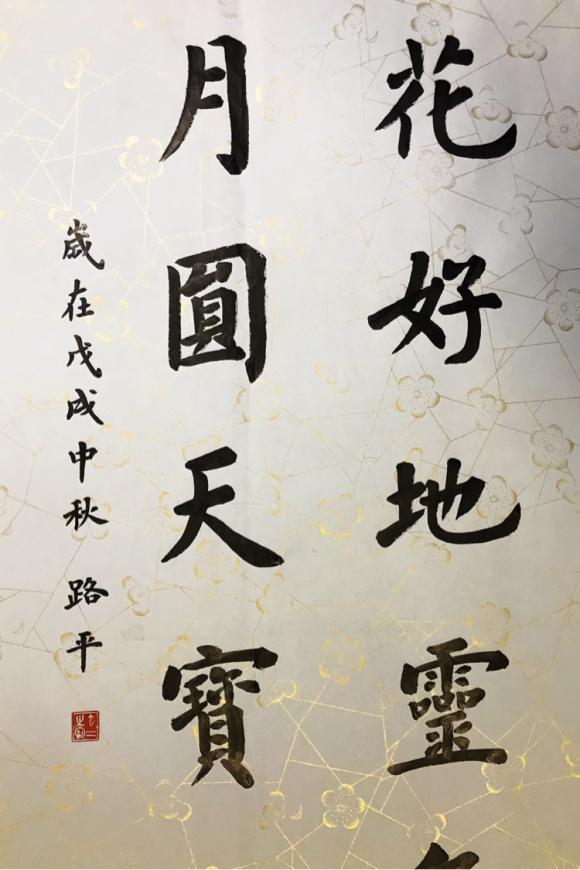 花好地靈
月圓天寶
歲在戊戌中秋 路平